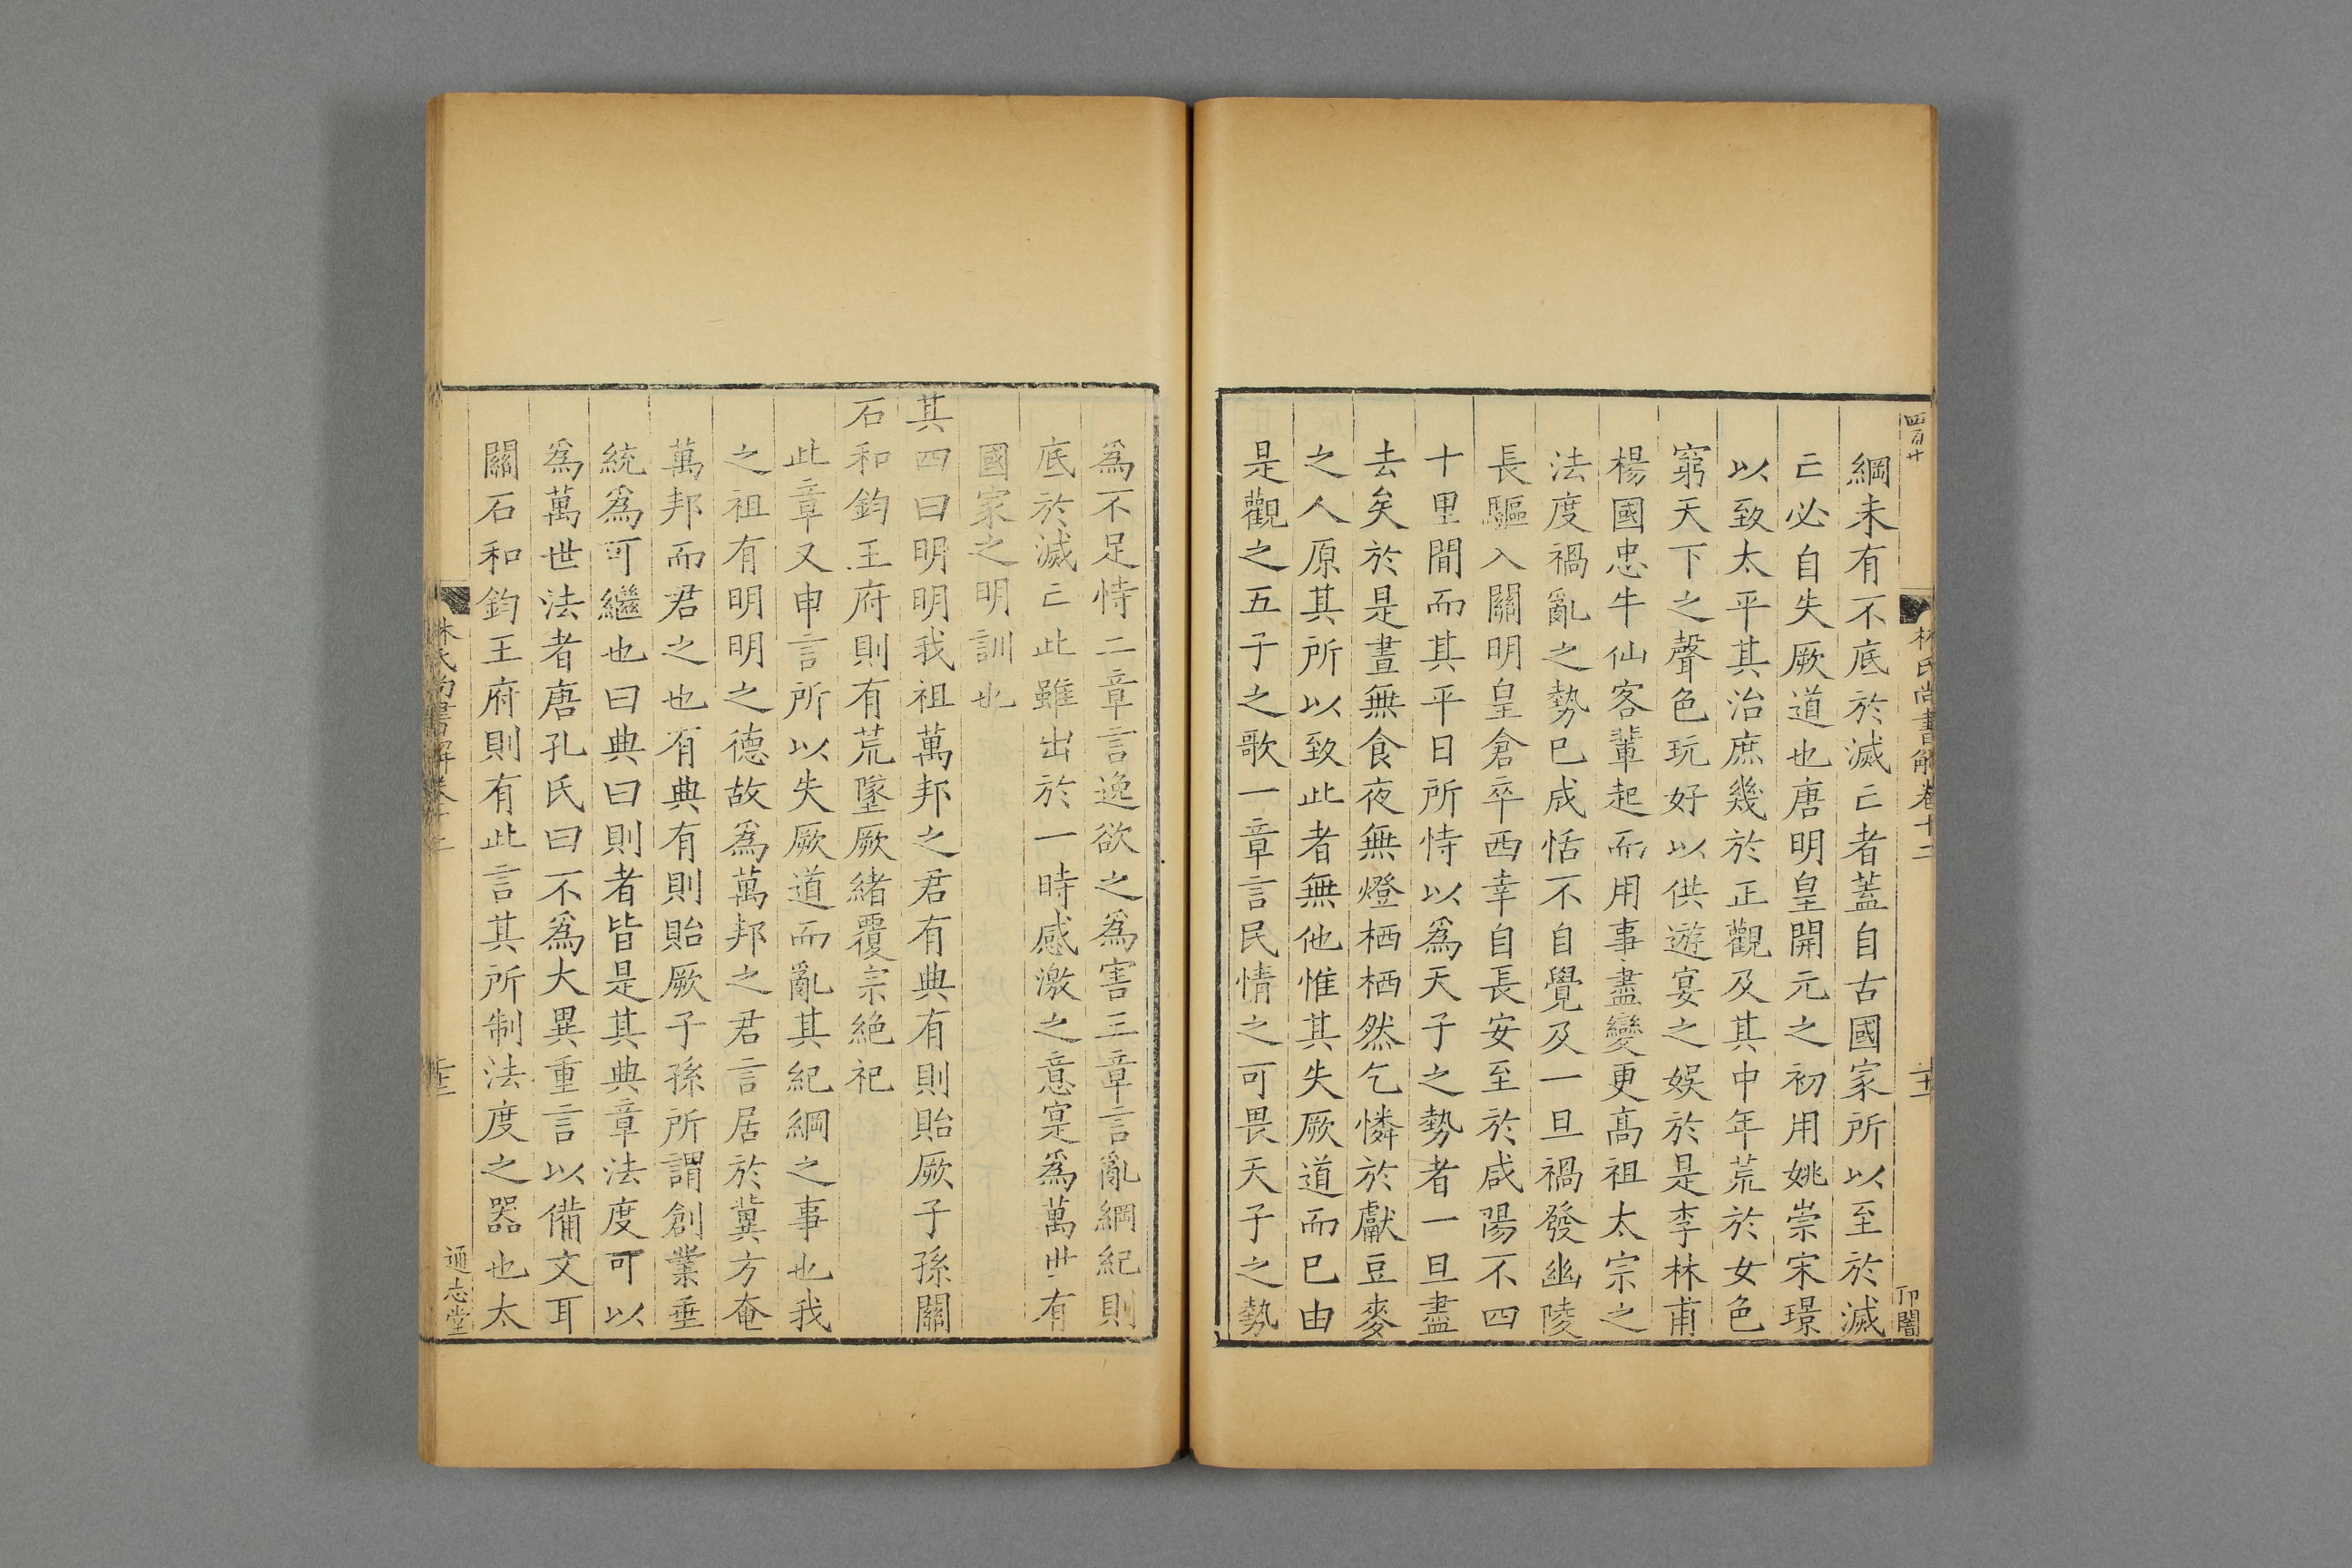 四百廿
林氏尚書解卷十二
卬闇
綱未有不底於滅亡者蓋自古國家所以至於滅
亡必自失厥道也唐明皇開元之初用姚崇宋璟
以致太平其治庶幾於正觀及其中年荒於女色
窮天下之聲色玩好以供遊宴之娛於是李林甫
楊國忠牛仙客輩起而用事盡變更髙祖太宗之
法度禍亂之勢已成恬不自覺及一旦禍發幽陵
長驅入關明皇倉卒西幸自長安至於咸陽不四
十里間而其平日所恃以爲天子之勢者一旦盡
去矣於是晝無食夜無燈栖栖然乞憐於獻豆麥
之人原其所以致此者無他惟其失厥道而已由
是觀之五子之歌一章言民情之可畏天子之勢
爲不足恃二章言逸欲之爲害三章言亂綱紀則
底於滅亡此雖出於一時感激之意寔爲萬世有
國家之明訓也
其四曰明明我祖萬邦之君有典有則貽厥子孫關
石和鈞王府則有荒墜厥緒覆宗絶祀
此章又申言所以失厥道而亂其紀綱之事也我
之祖有明明之德故爲萬邦之君言居於冀方奄
萬邦而君之也有典有則貽厥子孫所謂創業垂
統爲可繼也曰典曰則者皆是其典章法度可以
爲萬世法者唐孔氏曰不爲大異重言以備文耳
關石和鈞王府則有此言其所制法度之器也太
林氏尚書解卷十二
通志堂